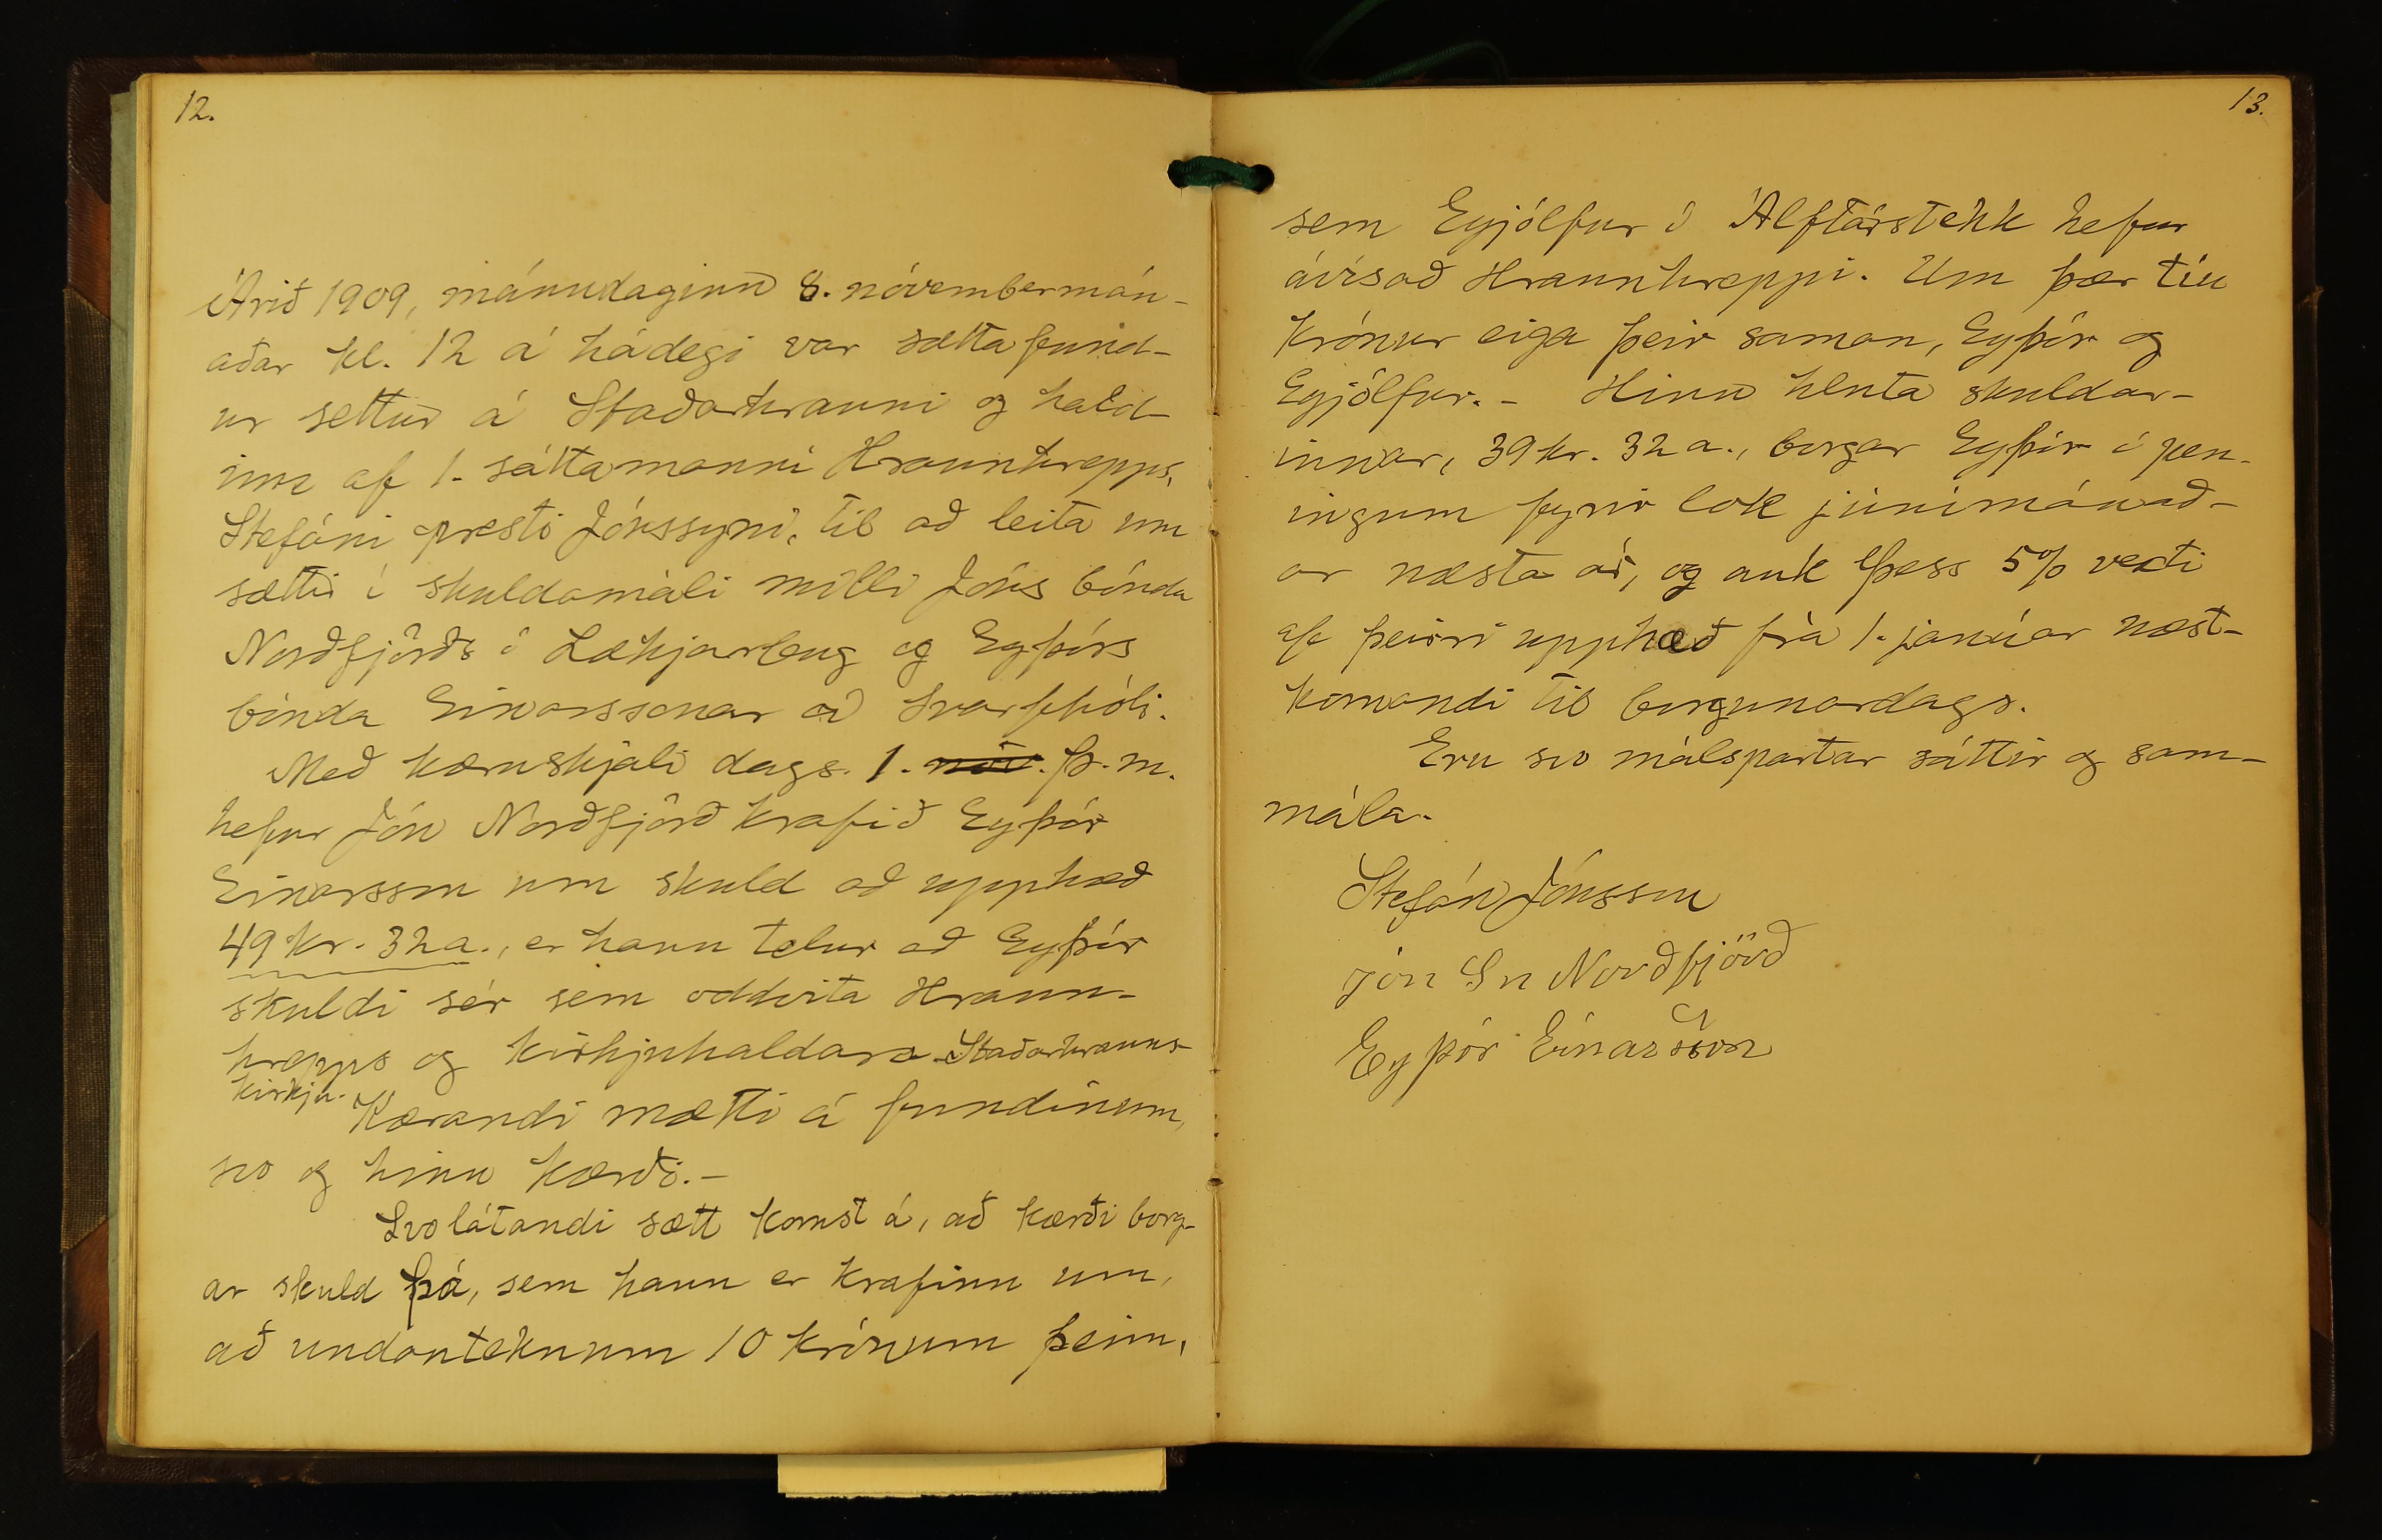 12.
Árið 1909, mánudaginn 8. nóvembermán-
aðar kl. 12 á hádegi var sáttafund-
ur settur á Staðarhrauni og hald-
inn af 1. sáttamanni Hraunhrepps,
Stefáni presti Jónssyni, til að leita um
sættir í skuldamáli milli Jóns bónda
Norðfjörðs í Lækjarbug og Eyþórs
bónda Einarssonar á Svarfhóli.
Með kæruskjali dags. 1. nóv. þ.m.
hefur Jón Norðfjörð krafið Eyþór
Einarsson um skuld að upphæð
49 kr. 32 a., er hann telur að Eyþór
skuldi sér sem oddvita Hraun-
hrepps og kirkjuhaldara Staðarhrauns-
kirkju.
Kærandi mætti á fundinum,
svo og hinn kærði.-
Svolátandi sætt komst á, að kærði borg-
ar skuld þá, sem hann er krafinn um,
að undanteknum 10 krónum þeim,
13.
sem Eyjólfur í Álftárstekk hefur
ávísað Hraunhreppi. Um þær tíu
krónur eiga þeir saman, Eyþór og
Eyjólfur. - Hinn hluta skuldar-
innar, 39 kr. 32 a., borgar Eyþór í pen-
ingum fyrir lok júnímánað-
ar næsta ár, og auk þess 5% vexti
af þeirri upphæð frá 1. janúar næst-
komandi til borgunardags.
Eru svo málspartar sáttir og sam-
mála.
Stefán Jónsson
Jón Sn Norðfjörð
Eyþór Einarsson